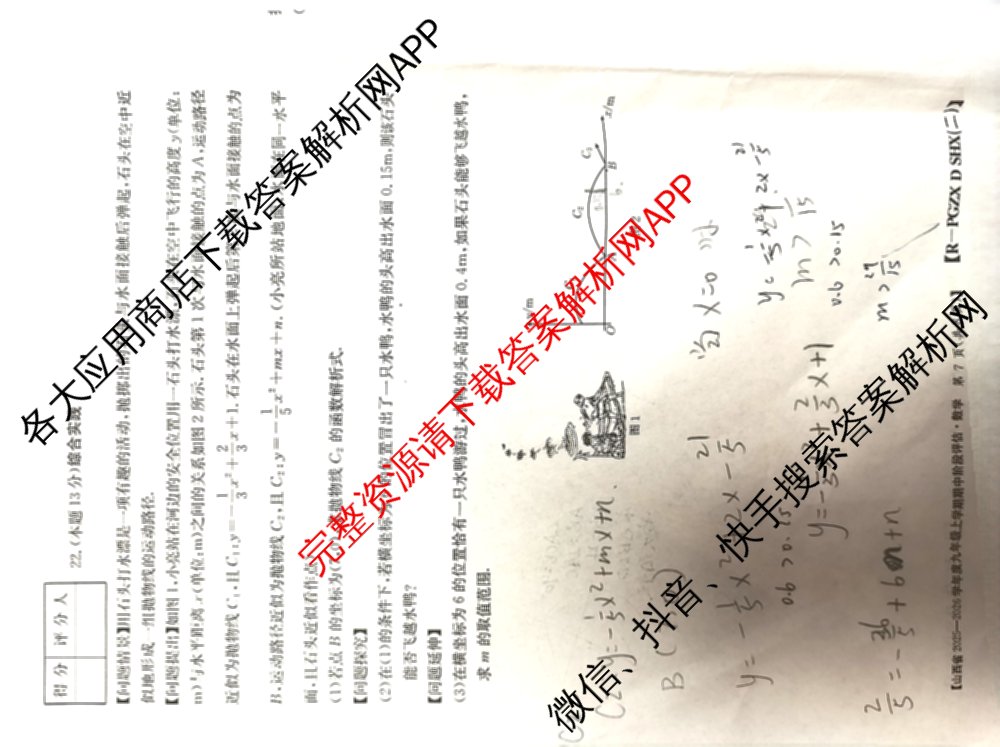 得分 评分人
22.(本题13分)综合实践
【问题情境】用石头打水漂是一项有趣的活动,抛掷出 与水面接触后弹起,石头在空中近
似地形成一组抛物线的运动路径.
【问题提出】如图1,小亮站在河边的安全位置用一石头打水漂, 在空中飞行的高度y(单位:
m)与水平距离x(单位:m)之间的关系如图2所示.石头第1次与水面接触的点为A,运动路径
近似为抛物线C₁,且C₁:y=-1/3x²+2/3x+1.石头在水面上弹起后第 与水面接触的点为
B,运动路径近似为抛物线C₂,且C₂:y=-1/5x²+mx+n.(小亮所站地面 水面在同一水平
面,且石头近似看作点)
(1)若点B的坐标为 抛物线C₂的函数解析式.
【问题探究】
(2)在(1)的条件下,若横坐标为 的位置冒出了一只水鸭,水鸭的头高出水面0.15m,则该石头
能否飞越水鸭?
【问题延伸】
(3)在横坐标为6的位置恰有一只水鸭游过,水鸭的头高出水面0.4m,如果石头能够飞越水鸭,
求m的取值范围.
图1
y/m
O
C₂
B
C₃
x/m
y=-1/5x²+mx+n.
B(
y=-1/5x²+2x-21/5
0.6>0.15
2/5=-36/5+6m+n
当x=0时
2/3x+1
m>
0.6>0.15
【山西省2025—2026学年度九年级上学期期中阶段评估·数学 第7页 】
【R-PGZX D SHX(二)】
各大应用商店下载答案解析网APP
完整资源请下载答案解析网APP
微信、抖音、快手搜索答案解析网